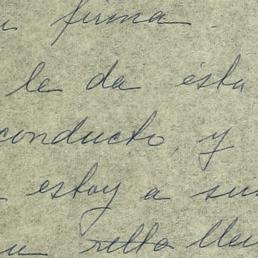 firma.
le da ésta
conducto, y
estoy a sus
sello lle